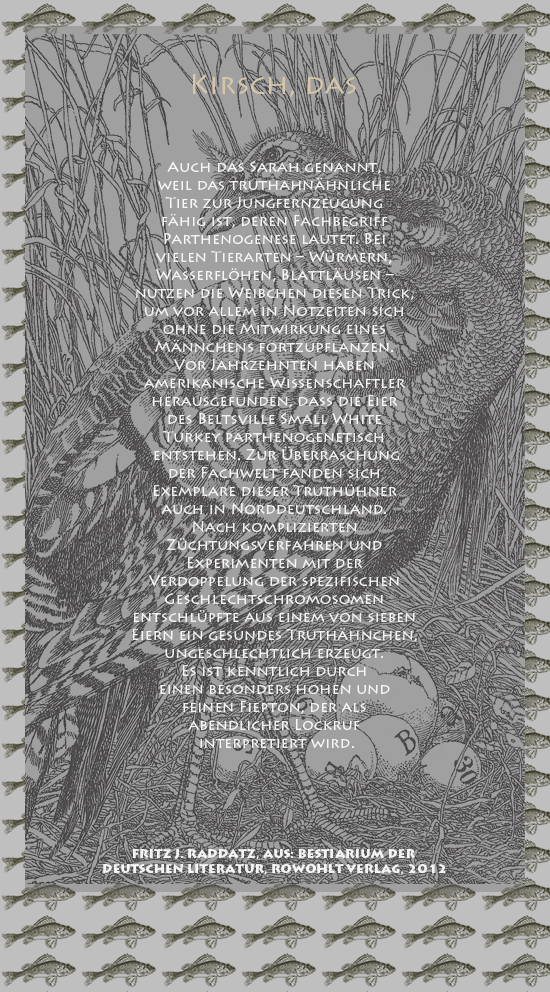 Kirsch, das
Auch das Sarah genannt,
weil das truthahnähnliche
Tier zur Jungfernzeugung
fähig ist, deren Fachbegriff
Parthenogenese lautet. Bei
vielen Tierarten – Würmern,
Wasserflöhen, Blattläusen –
nutzen die Weibchen diesen Trick;
um vor allem in Notzeiten sich
ohne die Mitwirkung eines
Männchens fortzupflanzen.
Vor Jahrzehnten haben
amerikanische Wissenschaftler
herausgefunden, dass die Eier
des Beltsville Small White
Turkey parthenogenetisch
entstehen. Zur Überraschung
der Fachwelt fanden sich
Exemplare dieser Truthühner
auch in Norddeutschland.
Nach komplizierten
Züchtungsverfahren und
Experimenten mit der
Verdoppelung der spezifischen
Geschlechtschromosomen
entschlüpfte aus einem von sieben
Eiern ein gesundes Truthähnchen,
ungeschlechtlich erzeugt.
Es ist kenntlich durch
einen besonders hohen und
feinen Fiepton, der als
abendlicher Lockruf
interpretiert wird.
B
30
Fritz J. Raddatz, aus: Bestiarium der
deutschen Literatur, Rowohlt Verlag, 2012